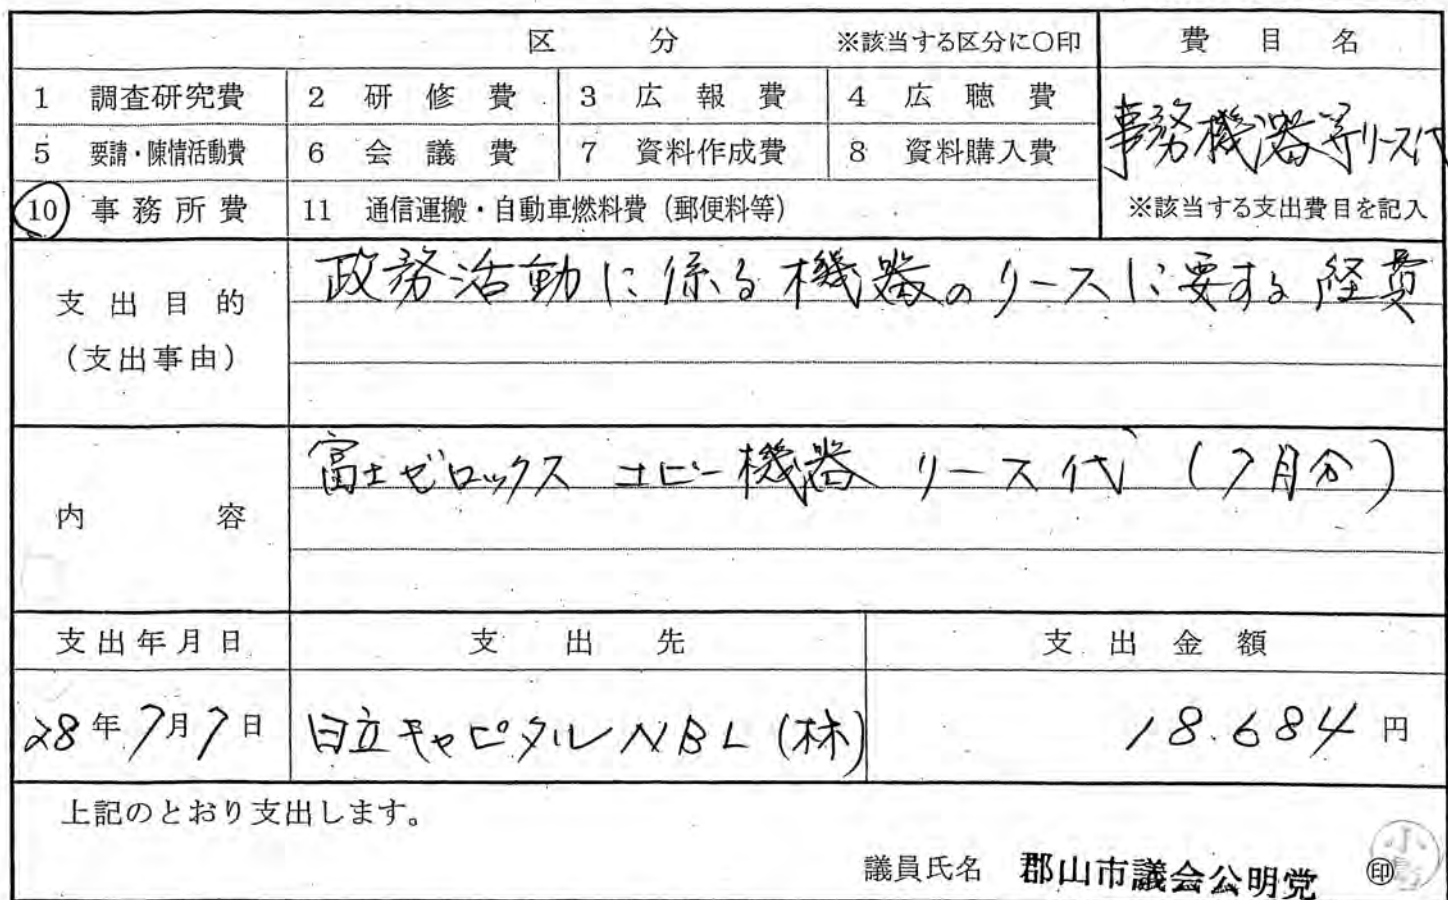 区 分 ※該当する区分に○印 費 目 名
1 調査研究費 2 研 修 費 3 広 報 費 4 広 聴 費
事務機器等リース代
5 要請・陳情活動費 6 会 議 費 7 資料作成費 8 資料購入費
10 事務所費 11 通信運搬・自動車燃料費(郵便料等) ※該当する支出費目を記入
支出目的
(支出事由)
政務活動に係る機器のリースに要する経費
内 容
富士ゼロックス コピー機器 リース代 (7月分)
支出年月日 支 出 先 支 出 金 額
28年7月7日 日立キャピタルNBL(株) 18.684円
上記のとおり支出します。
議員氏名 郡山市議会公明党 ㊞